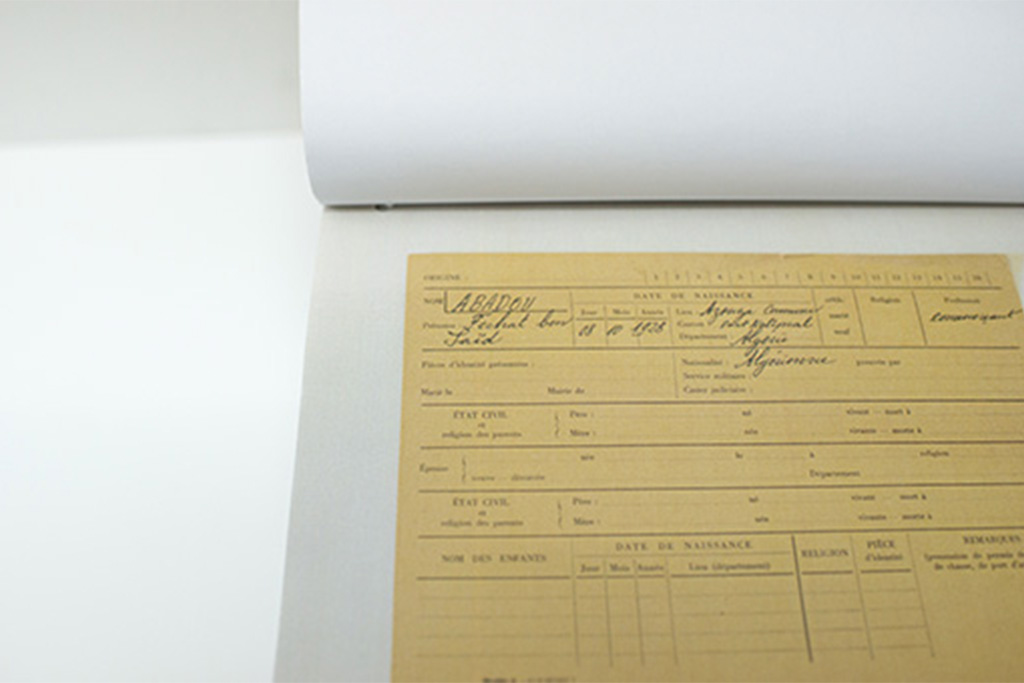 ORIGINE : 1 2 3 4 5 6 7 8 9 10 11 12 13 14 15 16
NOM ABADOU DATE DE NAISSANCE Religion Profession
Jour Mois Année Lieu : Azouza
Prénoms : ben 08 10 1928 Canton
Saïd Département Algérie
Pièces d'identité présentées : Nationalité : Algérienne
Service militaire :
Marié le Mairie de Casier judiciaire :
ÉTAT CIVIL Père : né vivant — mort à
et
religion des parents Mère : née vivante — morte à
Épouse née le à religion
veuve — divorcée Département
ÉTAT CIVIL Père : né vivant — mort à
et
religion des parents Mère : née vivante — morte à
NOM DES ENFANTS DATE DE NAISSANCE RELIGION PIÈCE REMARQUES
Jour Mois Année Lieu (département) d'identité (possession de permis
de chasse, de port